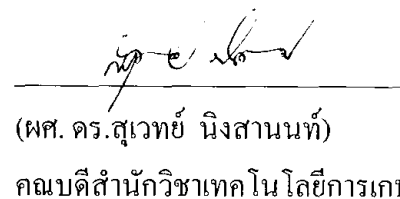 (ผศ. ดร.สุเวทย์ นิงสานนท์)
คณบดีสำนักวิชาเทคโนโลยีการเกษ